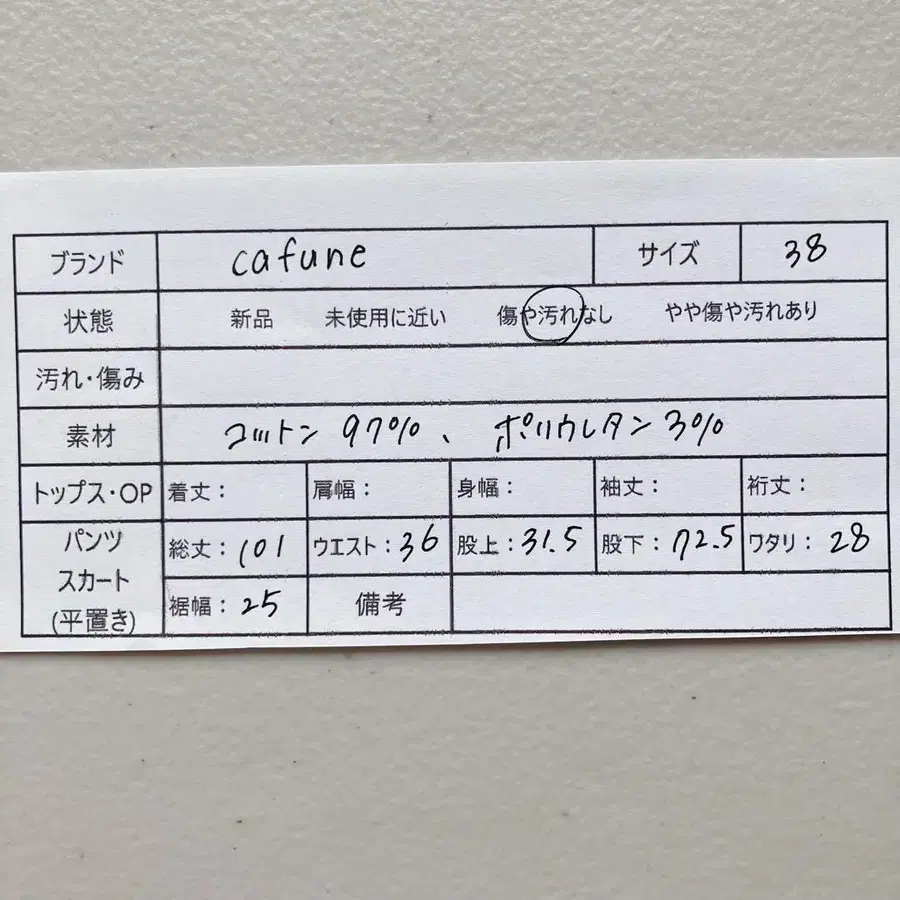 ブランド cafune サイズ 38
状態 新品 未使用に近い 傷や汚れなし やや傷や汚れあり
汚れ・傷み
素材 コットン 97%、ポリウレタン 3%
トップス・OP 着丈: 肩幅: 身幅: 袖丈: 裄丈:
パンツ
スカート
(平置き)
総丈: 101 ウエスト: 36 股上: 31.5 股下: 72.5 ワタリ: 28
裾幅: 25 備考